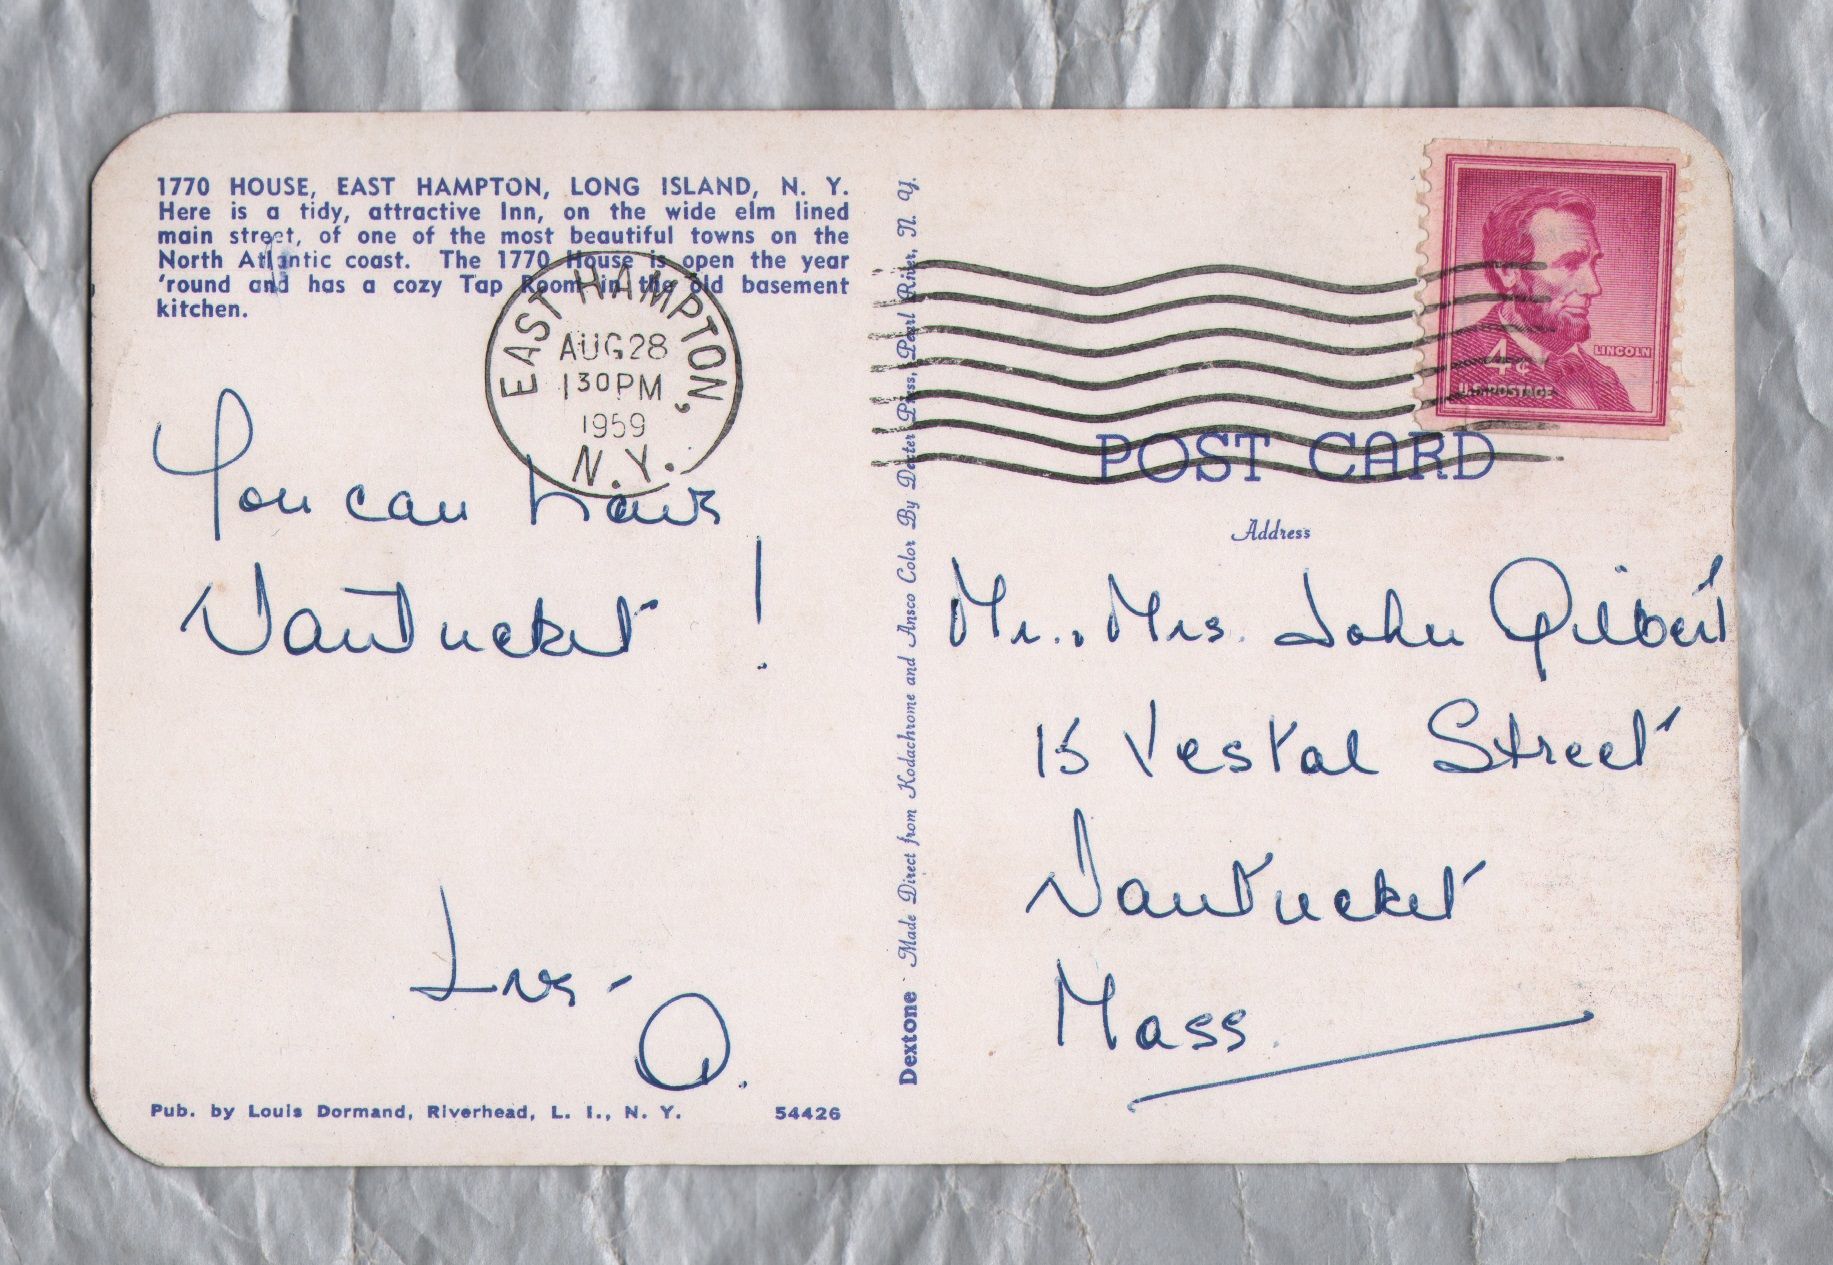 1770 HOUSE, EAST HAMPTON, LONG ISLAND, N. Y.
Here is a tidy, attractive Inn, on the wide elm lined
main street, of one of the most beautiful towns on the
North Atlantic coast. The 1770 House is open the year
'round and has a cozy Tap Room in the old basement
kitchen.
EAST HAMPTON,
AUG 28
1 30 PM
1959
N.Y.
You can have
Nantucket !
Love -
A.
Pub. by Louis Dormand, Riverhead, L. I., N. Y. 54426
Dextone Made Direct from Kodachrome and Ansco Color By Dexter Press, Pearl River, N. Y.
LINCOLN
4¢
U.S. POSTAGE
POST CARD
Address
Mr. + Mrs. John Gilbert
15 Vestal Street
Nantucket
Mass.